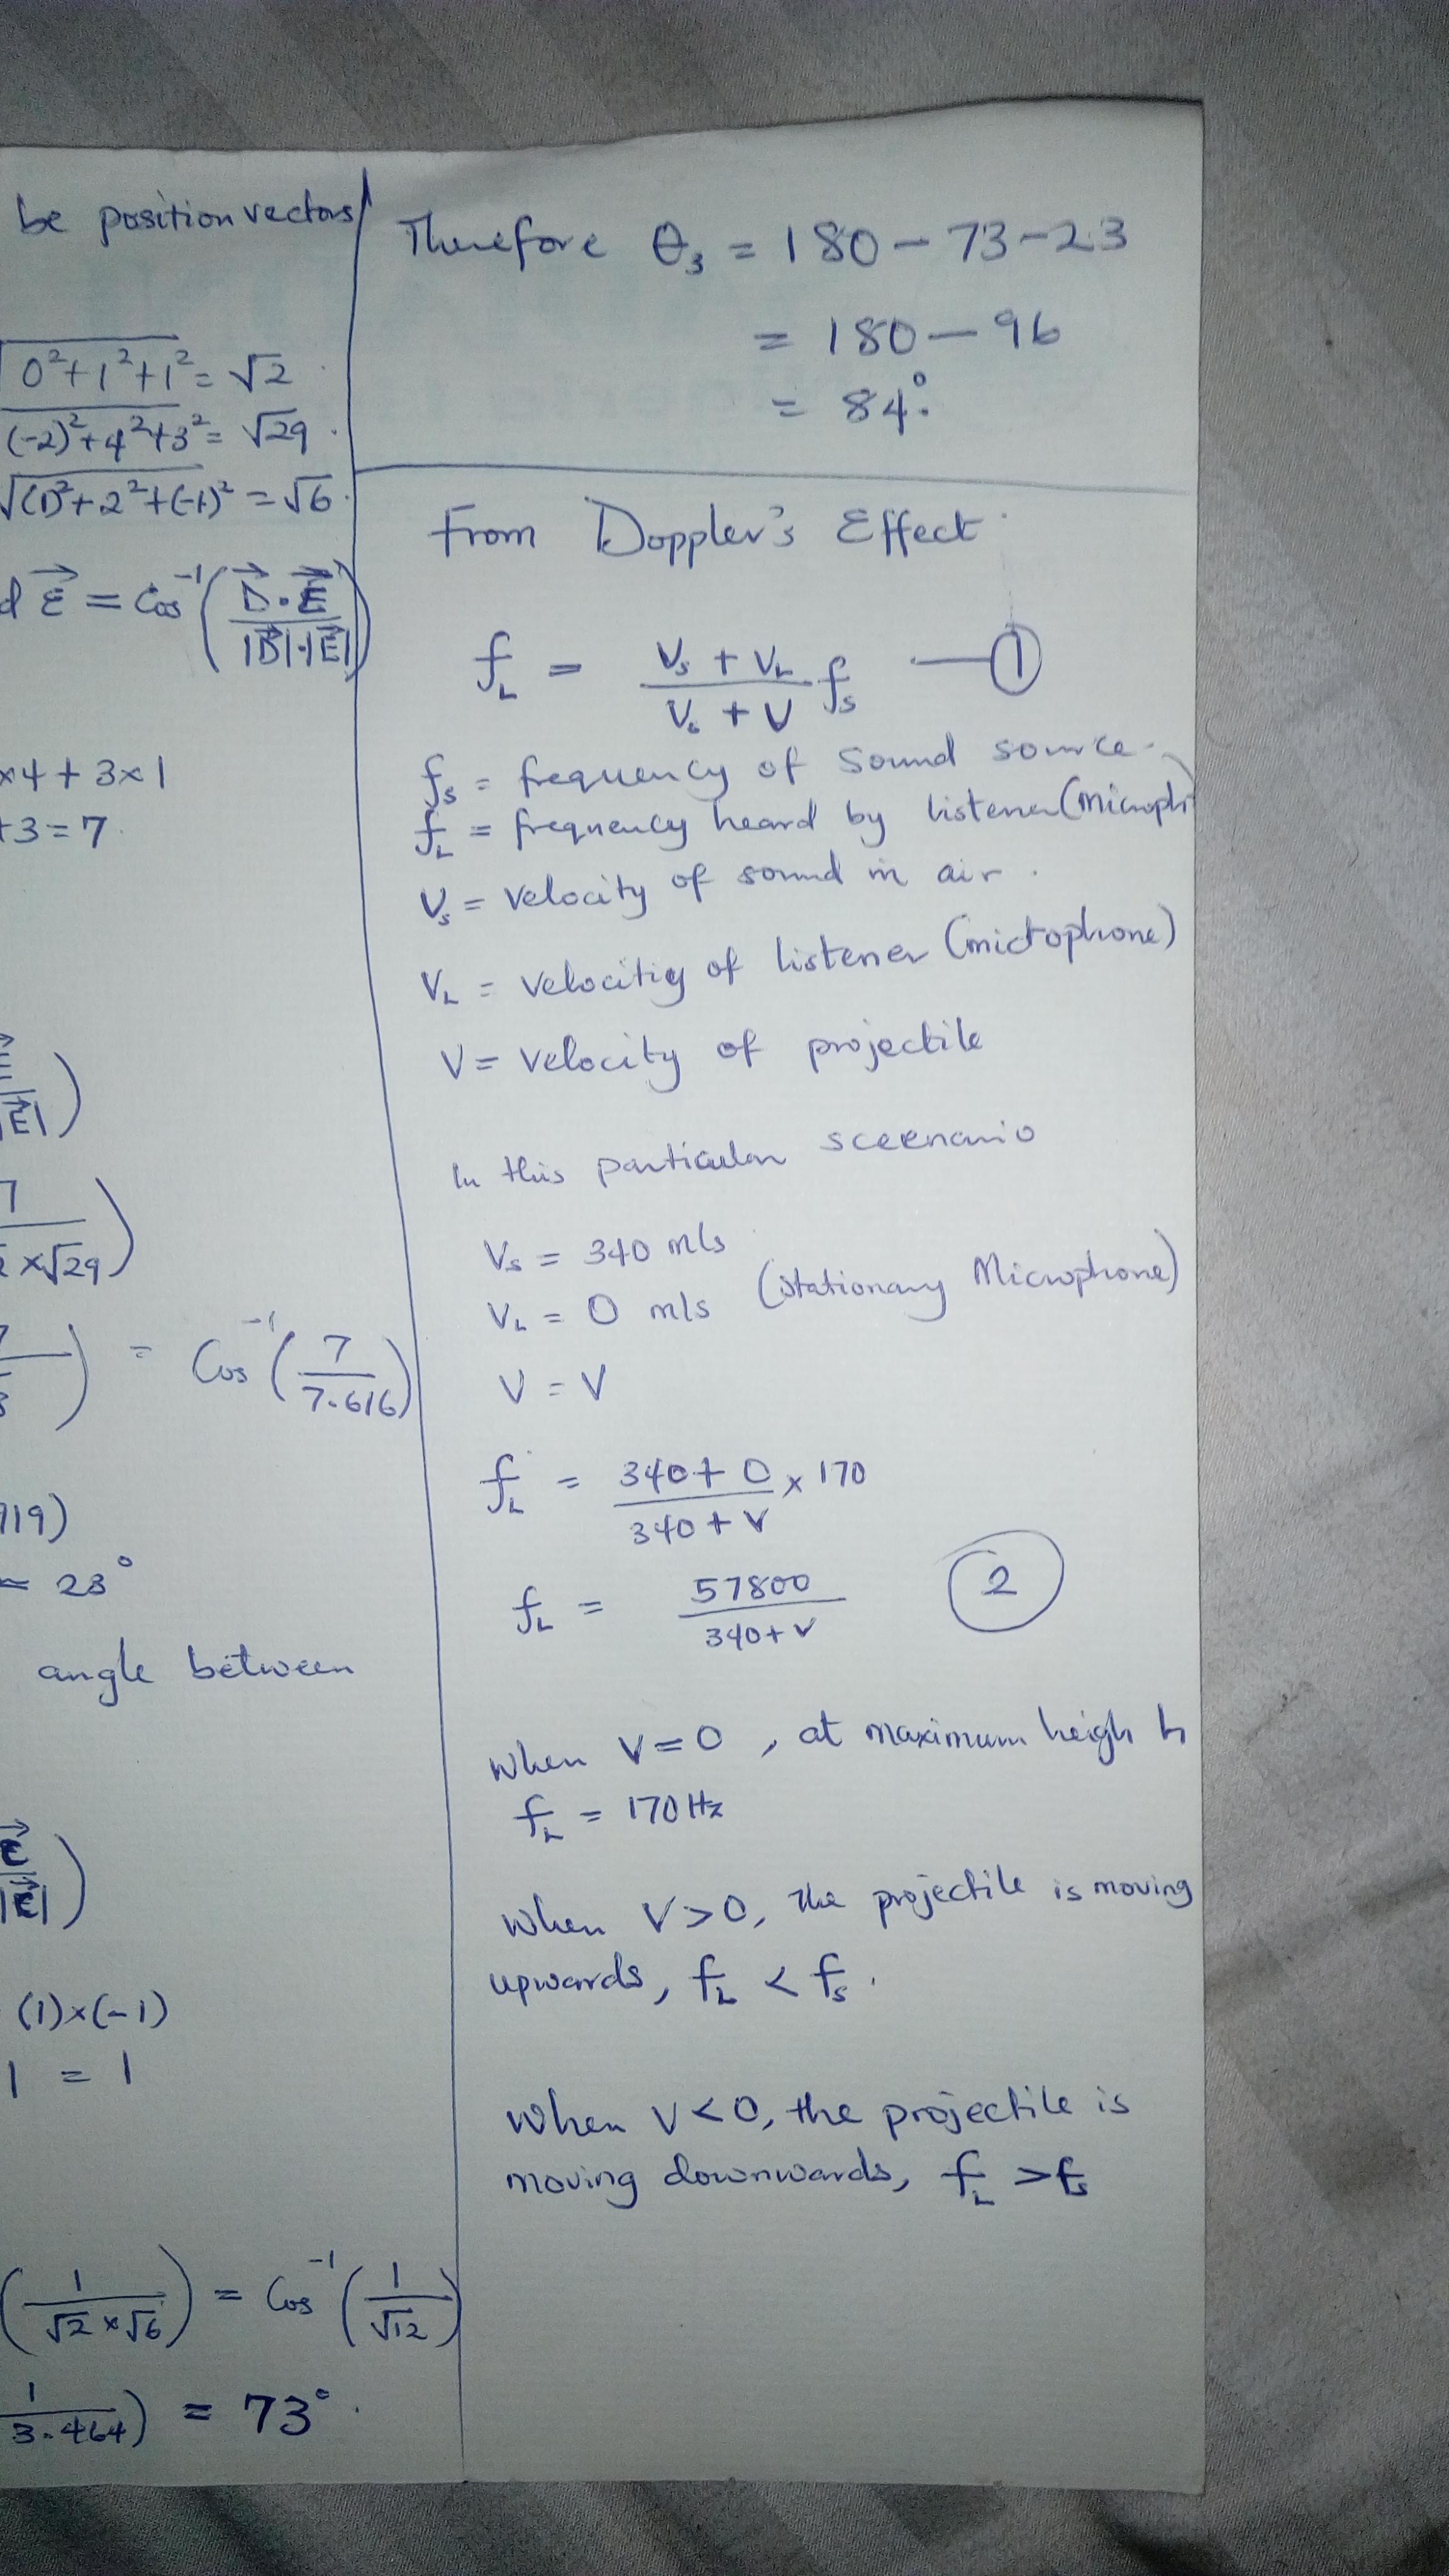 be position vectors
0²+1²+1² = √2
(-2)²+4²+3² = √29.
√(1)²+2²+(-1)² = √6.
d E⃗ = Cos⁻¹(D⃗·E⃗ / |D⃗|·|E⃗|)
x4 + 3x1
+3 = 7
|E⃗|)
7
x√29)
) = Cos⁻¹(7 / 7.616)
919)
= 23°
angle between
|E⃗|)
(1)x(-1)
1 = 1
(1 / √2 x √6) = Cos⁻¹(1 / √12)
1 / 3.464) = 73°.
Therefore θ₃ = 180 - 73 - 23
= 180 - 96
= 84°.
From Doppler's Effect
f_L = (V_s + V_L / V_s + V) f_s —①
f_s = frequency of Sound source.
f_L = frequency heard by listener (Microph
V_s = velocity of sound in air.
V_L = velocitiy of listener (mictophone)
V = velocity of projectile
In this particular sceenario
V_s = 340 m/s
V_L = 0 m/s (stationary Microphone)
V = V
f_L = (340 + 0 / 340 + V) x 170
f_L = 57800 / 340 + V ②
When V = 0, at maximum heigh h
f_L = 170 Hz
When V > 0, the projectile is moving
upwards, f_L < f_s.
When V < 0, the projectile is
moving downwards, f_L > f_s